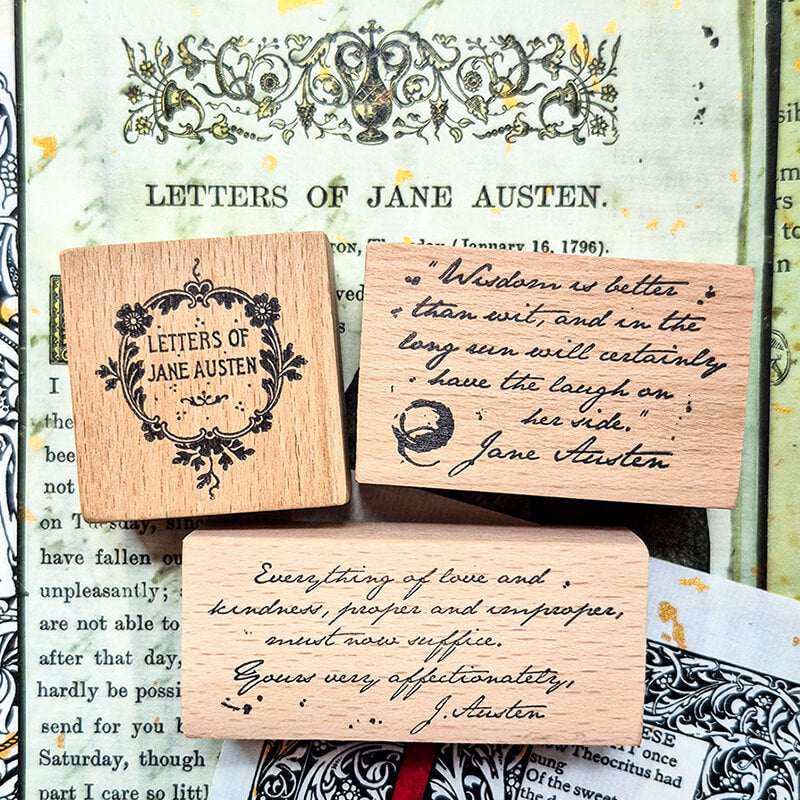 LETTERS OF JANE AUSTEN.
(January 16, 1796).
LETTERS OF
JANE AUSTEN
"Wisdom is better
than wit, and in the
long run will certainly
have the laugh on
her side."
Jane Austen
I
the
bee
not
on Tuesday, since
have fallen ou
unpleasantly;
are not able to
after that day,
hardly be possi
send for you b
Saturday, though
part I care so littl
Everything of love and
kindness, proper and improper,
must now suffice.
Yours very affectionately,
J. Austen
once
Theocritus had
sung
Of the sweet